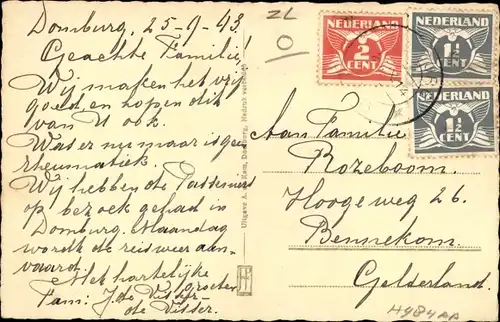 Domburg, 25-9-43.
Geachte Familie!
Wij maken het vrij
goed, en hopen dit
van U ook.
Was er nu maar 'ns geen
rheumatiek.
Wij hebben de
op bezoek gehad in
Domburg. Maandag
wordt de reis weer aan-
vaard.
Met hartelijke
groeten
Fam: J. de Visser
de Visser.
ZL
O
Uitgave A. v. d. Kam, Domburg, Nadruk verboden
NEDERLAND
2
CENT
NEDERLAND
1½
CENT
NEDERLAND
1½
CENT
Aan Familie
Rozeboom.
Hoogeweg 26.
Bennekom.
Gelderland.
H984AA